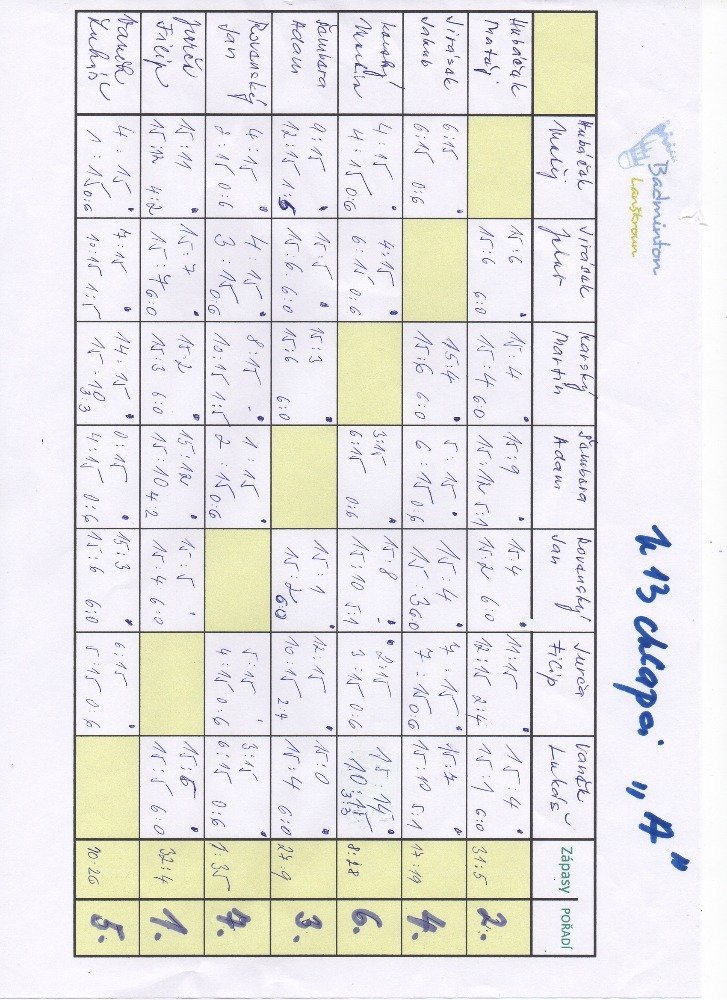 Badminton
Lanškroun
U 13 chlapci „A"
Hubáček Jirásek Karský Šimbera Rovenský Jurča Vaněk Zápasy POŘADÍ
Matěj Jakub Martin Adam Jan Filip Lukáš
Hubáček 15:6 15:4 15:9 15:4 11:15 15:4 31:5 2.
Matěj 15:6 6:0 15:4 6:0 15:12 5:1 15:2 6:0 12:15 2:4 15:1 6:0
Jirásek 6:15 15:4 5:15 15:4 7:15 15:7 17:19 4.
Jakub 6:15 0:6 15:6 6:0 6:15 0:6 15:3 6:0 7:15 0:6 15:10 5:1
Karský 4:15 4:15 3:15 15:8 2:15 15:14 8:28 6.
Martin 4:15 0:6 6:15 0:6 6:15 0:6 15:10 5:1 3:15 0:6 10:15 3:3
Šimbera 9:15 15:5 15:3 15:1 12:15 15:0 27:9 3.
Adam 12:15 1:5 15:6 6:0 15:6 6:0 15:2 6:0 10:15 2:4 15:4 6:0
Rovenský 4:15 4:15 8:15 1:15 5:15 3:15 1:35 7.
Jan 8:15 0:6 3:15 0:6 10:15 1:5 2:15 0:6 4:15 0:6 6:15 0:6
Jurča 15:11 15:7 15:2 15:12 15:5 15:6 32:4 1.
Filip 15:12 4:2 15:7 6:0 15:3 6:0 15:10 4:2 15:4 6:0 15:5 6:0
Vaněk 4:15 7:15 14:15 0:15 15:3 6:15 10:26 5.
Lukáš 1:15 0:6 10:15 1:5 15:10 3:3 4:15 0:6 15:6 6:0 5:15 0:6